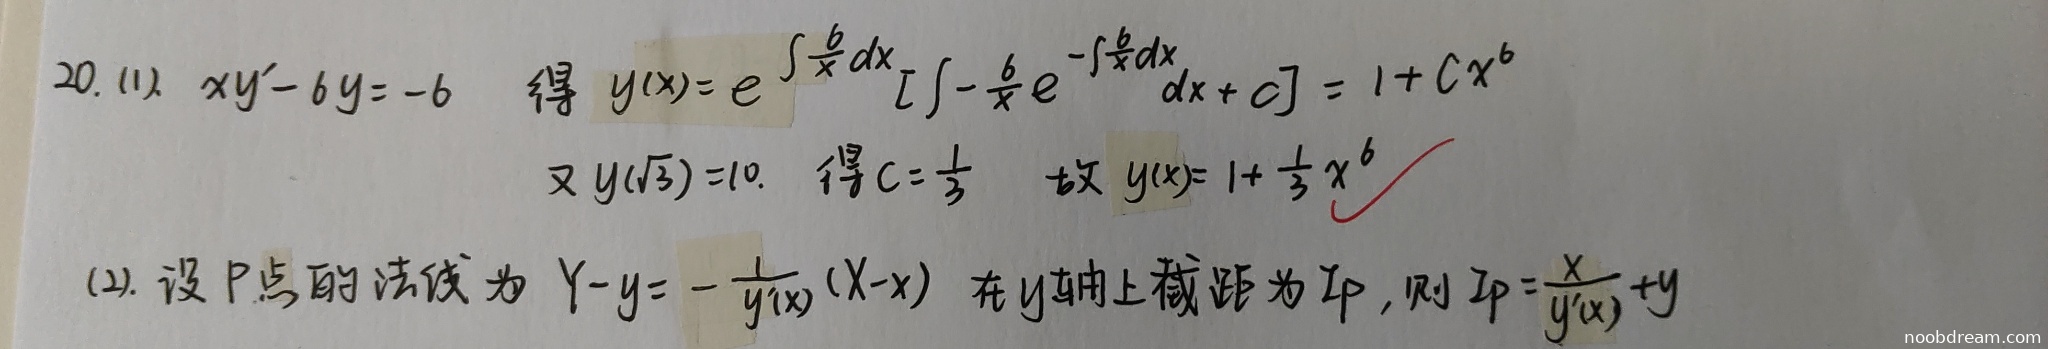 20. (1). xy′-6y=-6 得 y(x)=e^{∫6/x dx}[∫-6/x e^{-∫6/x dx}dx+C]=1+Cx^6
又 y(√3)=10. 得C=1/3 故 y(x)=1+1/3 x^6
(2). 设P点的法线为 Y-y=-1/y′(x) (X-x) 在y轴上截距为Ip,则Ip=x/y′(x)+y
noobdream.com